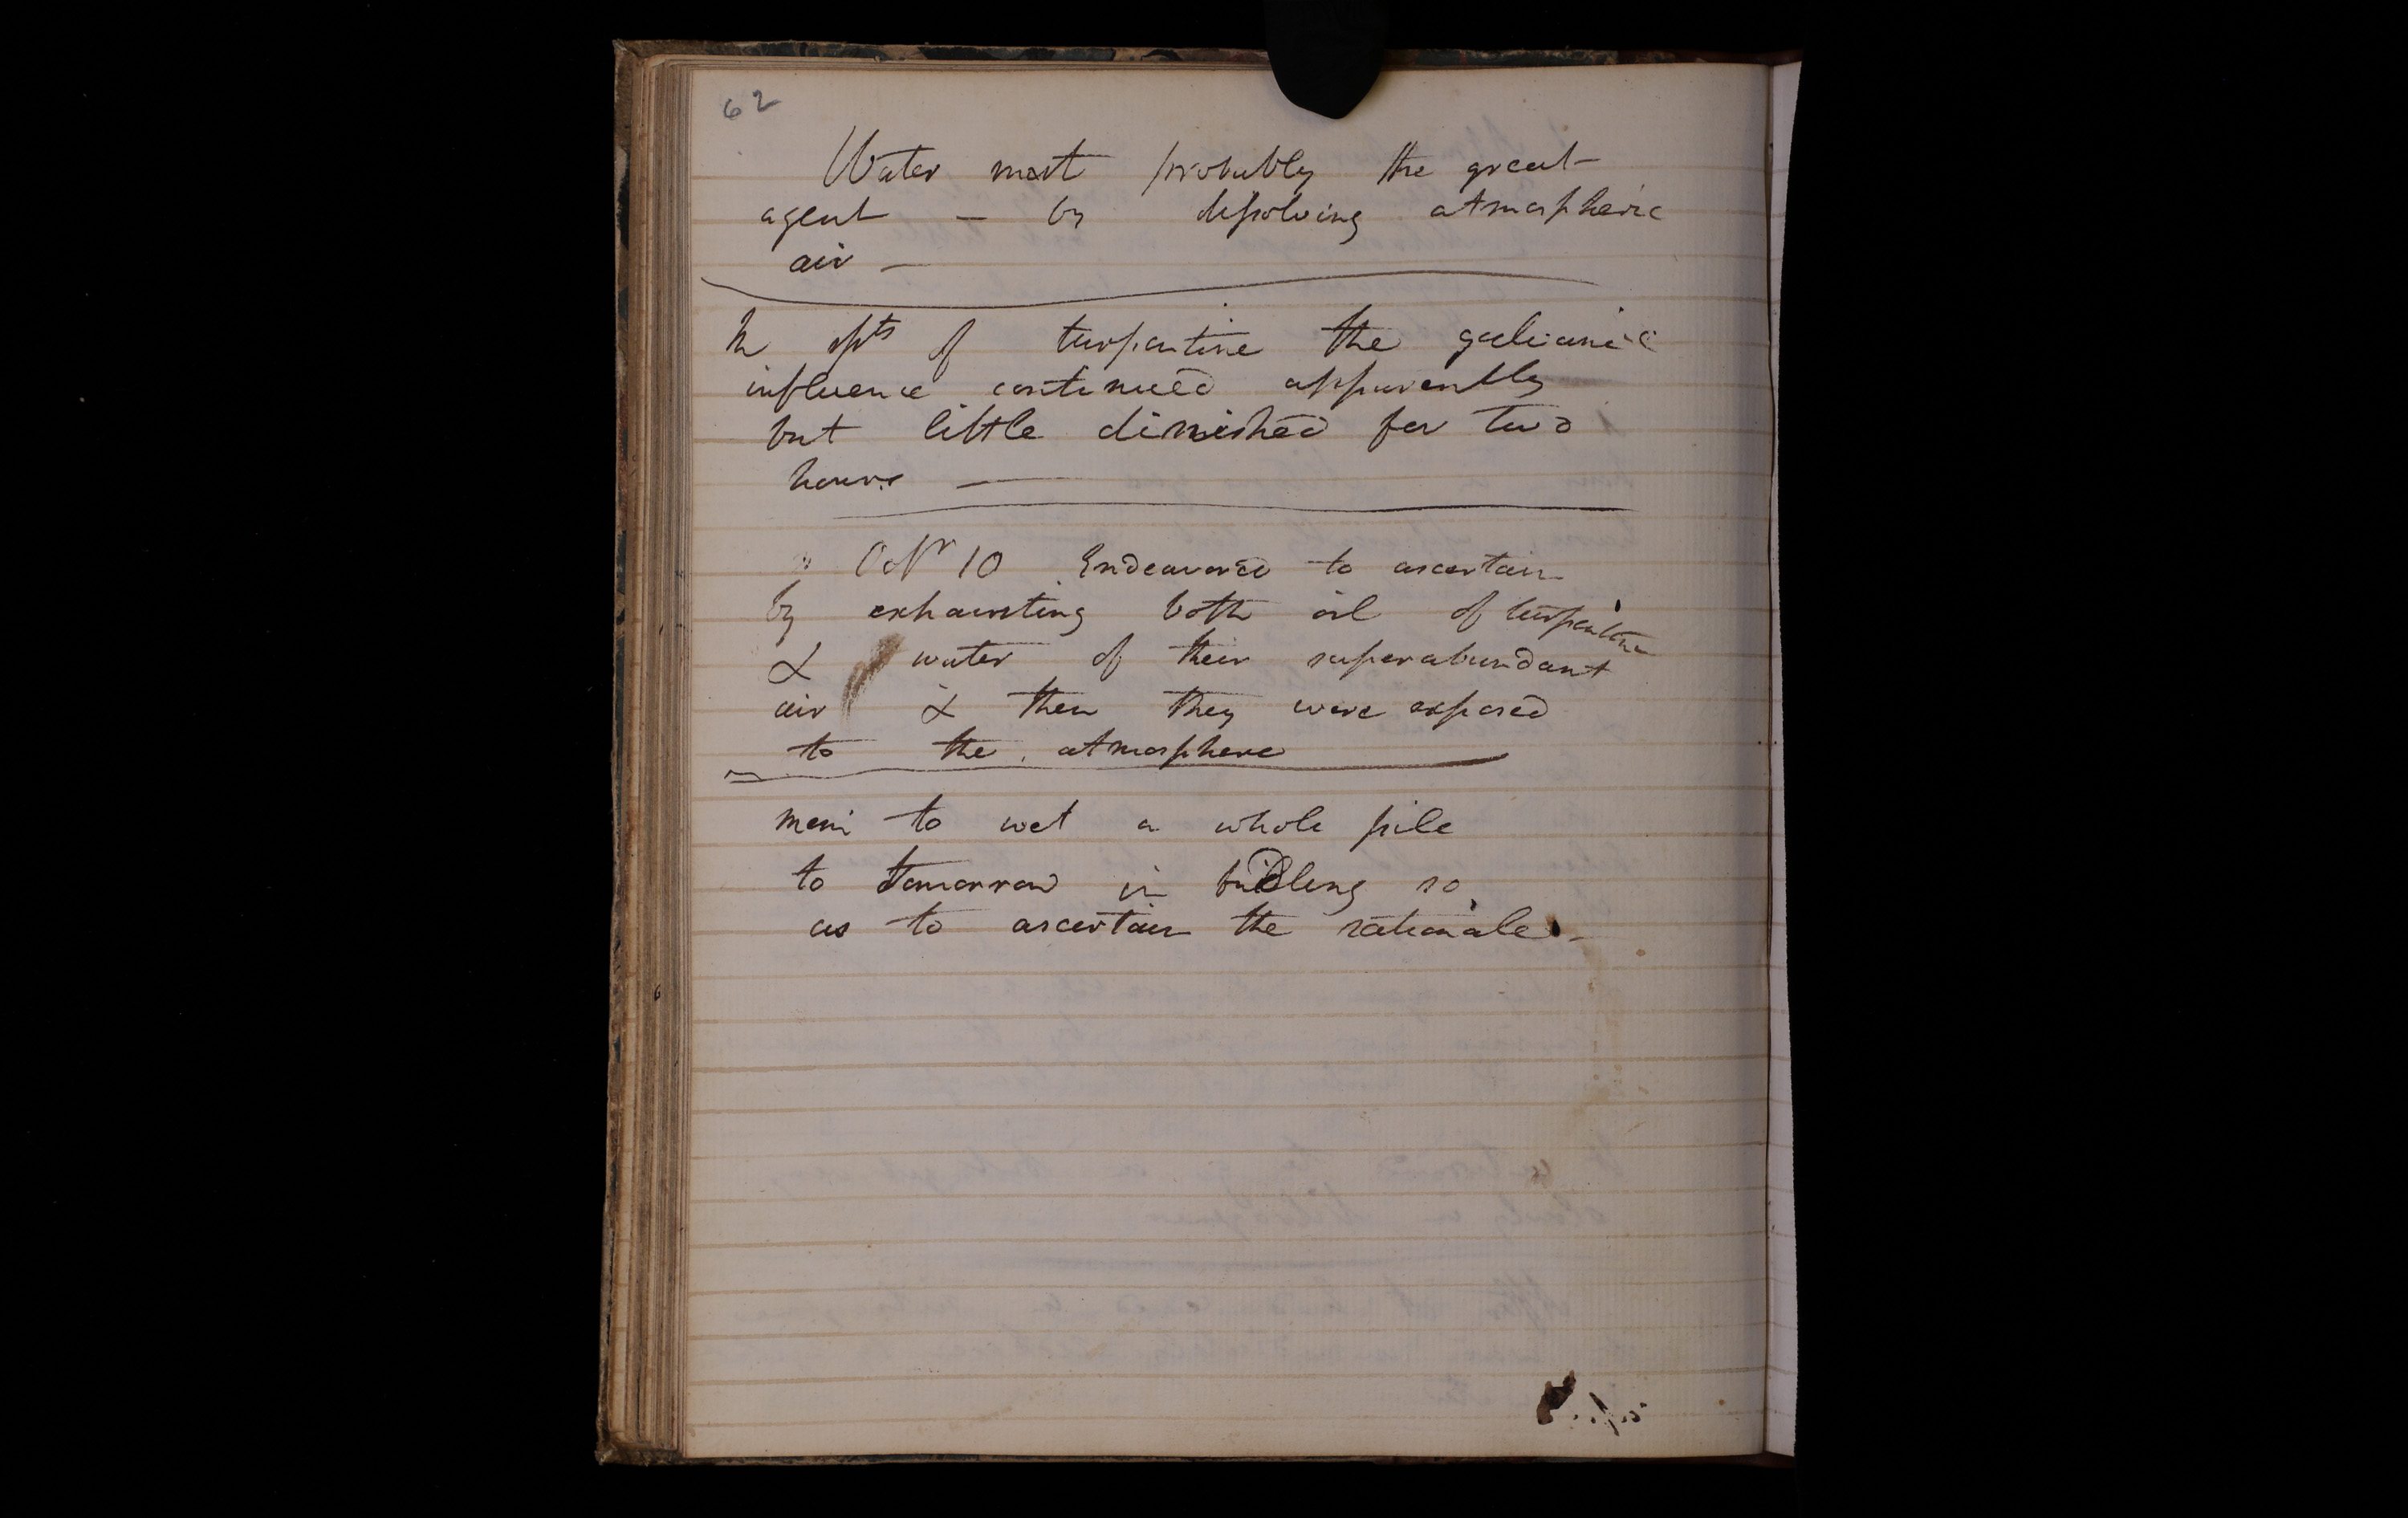 62
Water most probably the great
agent — by dissolving atmospheric
air —
In spts of turpentine the galvanic
influence continued apparently
but little dimished for two
hours —
Octr 10 Endeavored to ascertain
by exhausting both oil of turpentine
& water of their superabundant
air & then they were exposed
to the atmosphere
mem to wet a whole pile
to tomorrow in building so
as to ascertain the rationale –